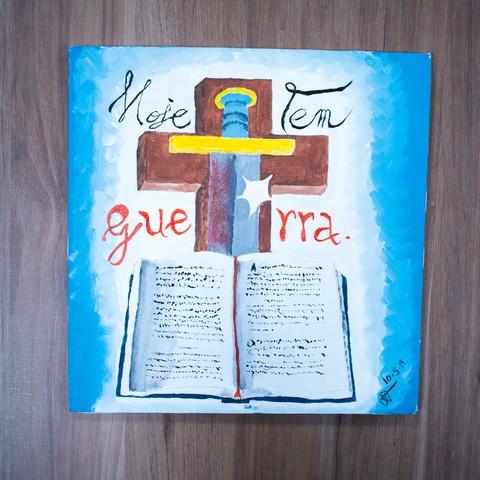 Hoje Tem
guerra.
10.5.19